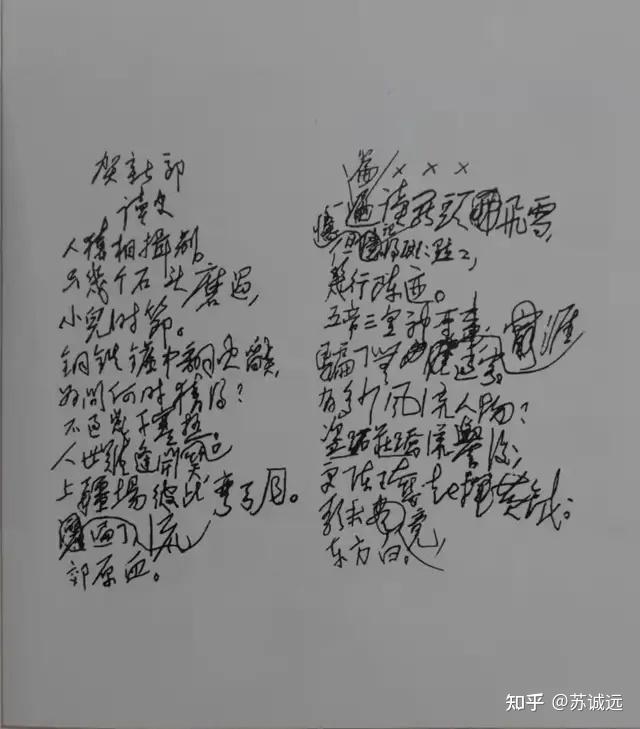 贺新郎
读史
人猿相揖别。
只几个石头磨过,
小儿时节。
铜铁炉中翻火焰,
为问何时猜得?
不过几千寒热。
人世难逢开口笑
上疆场彼此弯弓月。
流遍了
郊原血。
一篇读罢头白飞雪,
但记得斑斑点点,
几行陈迹。
五帝三皇神圣事,
骗了无涯过客。
有多少风流人物?
盗跖庄蹻流誉后,
更陈王奋起挥黄钺。
歌未竟,
东方白。
知乎 @苏诚远